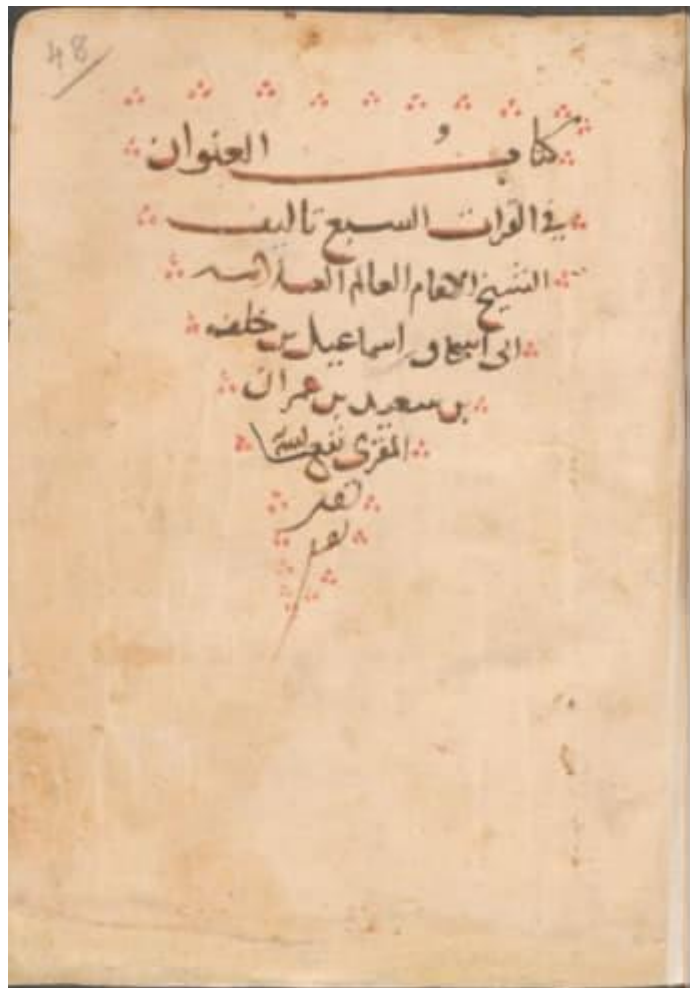 48
كتاب العنوان
في القرات السبع تاليف
الشيخ الامام العالم العلامه
ابى اسحاق اسماعيل بن خلف
بن سعيد بن عمران
المقرى نفع الله